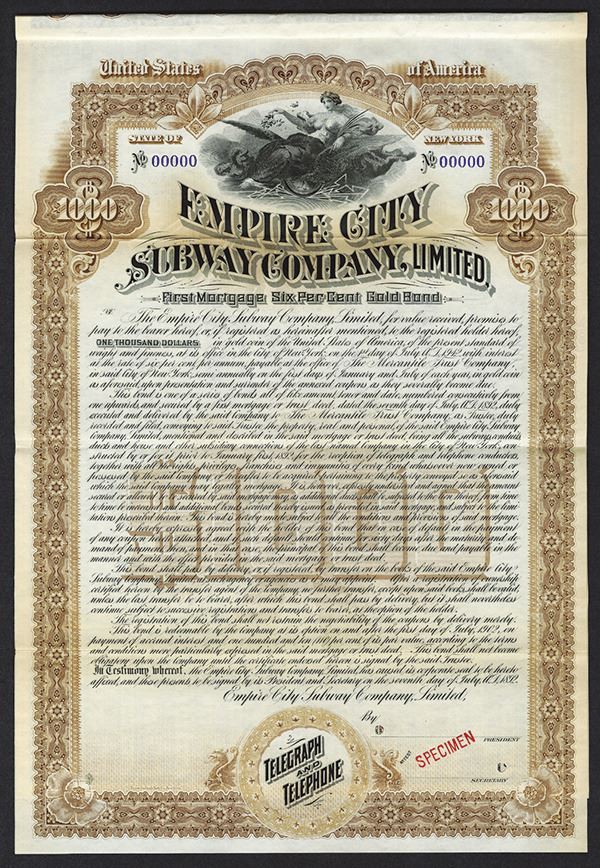 United States of America
STATE OF NEW YORK
No 00000 No 00000
1000 1000
EMPIRE CITY
SUBWAY COMPANY, LIMITED,
First Mortgage Six Per Cent Gold Bond
The Empire City Subway Company, Limited, for value received, promises to
pay to the bearer hereof, or, if registered as hereinafter mentioned, to the registered holder hereof,
ONE THOUSAND DOLLARS in gold coin of the United States of America, of the present standard of
weight and fineness, at its office in the City of New York, on the 1st day of July, A.D. 1942, with interest
at the rate of six per cent. per annum, payable at the office of The Mercantile Trust Company,
in said City of New York, semi-annually on the first days of January and July of each year, in gold coin
as aforesaid, upon presentation and surrender of the annexed coupons as they severally become due.
This bond is one of a series of bonds, all of like amount, tenor and date, numbered consecutively from
one upwards, and secured by a first mortgage or trust deed, dated the seventh day of July, A.D. 1892, duly
executed and delivered by the said Company to The Mercantile Trust Company, as Trustee, duly
recorded and filed, conveying to said Trustee the property, real and personal, of the said Empire City Subway
Company, Limited, mentioned and described in the said mortgage or trust deed, being all the subways, conduits
ducts and house and other subsidiary connections of the last named Company, in the City of New York, con-
structed by or for it prior to January first, 1892, for the reception of telegraph and telephone conductors,
together with all the rights, privileges, franchises and immunities of every kind whatsoever now owned or
possessed by the said Company
It is hereby expressly agreed with the holder of this bond that in case of default in the payment
of any coupon hereto attached, and such default should continue for sixty days after maturity and de-
mand of payment, then, and in that case, the principal of this bond shall become due and payable in the
manner and with the effect provided in the said mortgage or trust deed.
This bond shall pass by delivery, or, if registered, by transfer on the books of the said Empire City
Subway Company, Limited, at such agency or agencies as it may appoint. After a registration of ownership,
certified hereon by the transfer agent of the company, no further transfer, except upon said books, shall be valid,
unless the last transfer be to bearer, after which this bond shall pass by delivery, but it shall nevertheless
continue subject to successive registrations and transfers to bearer, as the option of the holder.
The registration of this bond shall not restrain the negotiability of the coupons by delivery merely.
This bond is redeemable by the Company at its option on and after the first day of July, 1902, on
payment of accrued interest and one hundred and ten (110) per cent. of its par value, according to the terms
and conditions more particularly expressed in the said mortgage or trust deed. This bond shall not become
obligatory upon the company until the certificate endorsed hereon is signed by the said Trustee.
In Testimony whereof, the Empire City Subway Company, Limited, has caused its corporate seal to be hereto
affixed, and these presents to be signed by its President and Secretary on the seventh day of July, A.D. 1892.
Empire City Subway Company, Limited,
By
PRESIDENT
TELEGRAPH
AND
TELEPHONE
ATTEST
SPECIMEN
SECRETARY
$1000